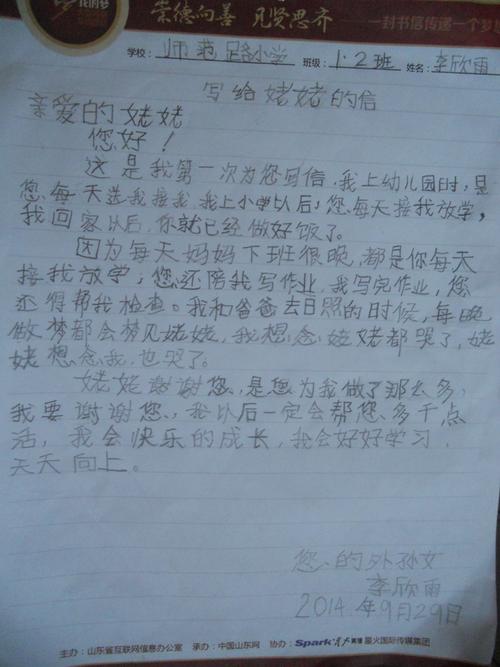 我的梦 崇德向善 见贤思齐 一封书信传递一个梦
学校: 师范路小学 班级: 1.2班 姓名: 李欣雨
写给姥姥的信
亲爱的姥姥
您好！
这是我第一次为您写信，我上幼儿园时，是
您每天送我接我，我上小学以后，您每天接我放学，
我回家以后，你就已经做好饭了。
因为每天妈妈下班很晚，都是你每天
接我放学，您还陪我写作业，我写完作业，您
还得帮我检查。我和爸爸去日照的时候，每晚
做梦都会梦见姥姥，我想念姥姥都哭了，姥
姥想念我，也哭了。
姥姥谢谢您，是您为我做了那么多，
我要谢谢您，我以后一定会帮您多干点
活，我会快乐的成长，我会好好学习，
天天向上。
您的外孙女
李欣雨
2014年9月29日
主办：山东省互联网信息办公室 承办：中国山东网 协办：Spark 星火国际传媒集团